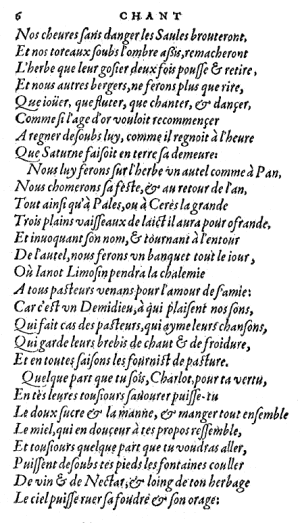 6 CHANT
Nos cheures sans danger les Saules brouteront,
Et nos toreaux soubs l'ombre aßis, remacheront
L'herbe que leur gosier deux fois pousse & retire,
Et nous autres bergers, ne ferons plus que rire,
Que ioüer, que fluter, que chanter, & dançer,
Comme si l'age d'or vouloit recommençer
A regner desoubs luy, comme il regnoit à l'heure
Que Saturne faisoit en terre sa demeure:
Nous luy ferons sur l'herbe vn autel comme à Pan,
Nous chomerons sa feste, & au retour de l'an,
Tout ainsi qu'à Pales, ou à Cerés la grande
Trois plains vaisseaux de laict il aura pour ofrande,
Et inuoquant son nom, & tournant à l'entour
De l'autel, nous ferons vn banquet tout le iour,
Où Ianot Limosin pendra la chalemie
A tous pasteurs venans pour l'amour de s'amie:
Car c'est vn Demidieu, à qui plaisent nos sons,
Qui fait cas des pasteurs, qui ayme leurs chansons,
Qui garde leurs brebis de chaut & de froidure,
Et en toutes saisons les fournist de pasture.
Quelque part que tu sois, Charlot, pour ta vertu,
En tes leures tousiours sauourer puisse-tu
Le doux sucre & la manne, & manger tout ensemble
Le miel, qui en douçeur à tes propos ressemble,
Et tousiours quelque part que tu voudras aller,
Puissent desoubs tes pieds les fontaines couller
De vin & de Nectar, & loing de ton herbage
Le ciel puisse ruer sa foudre & son orage: